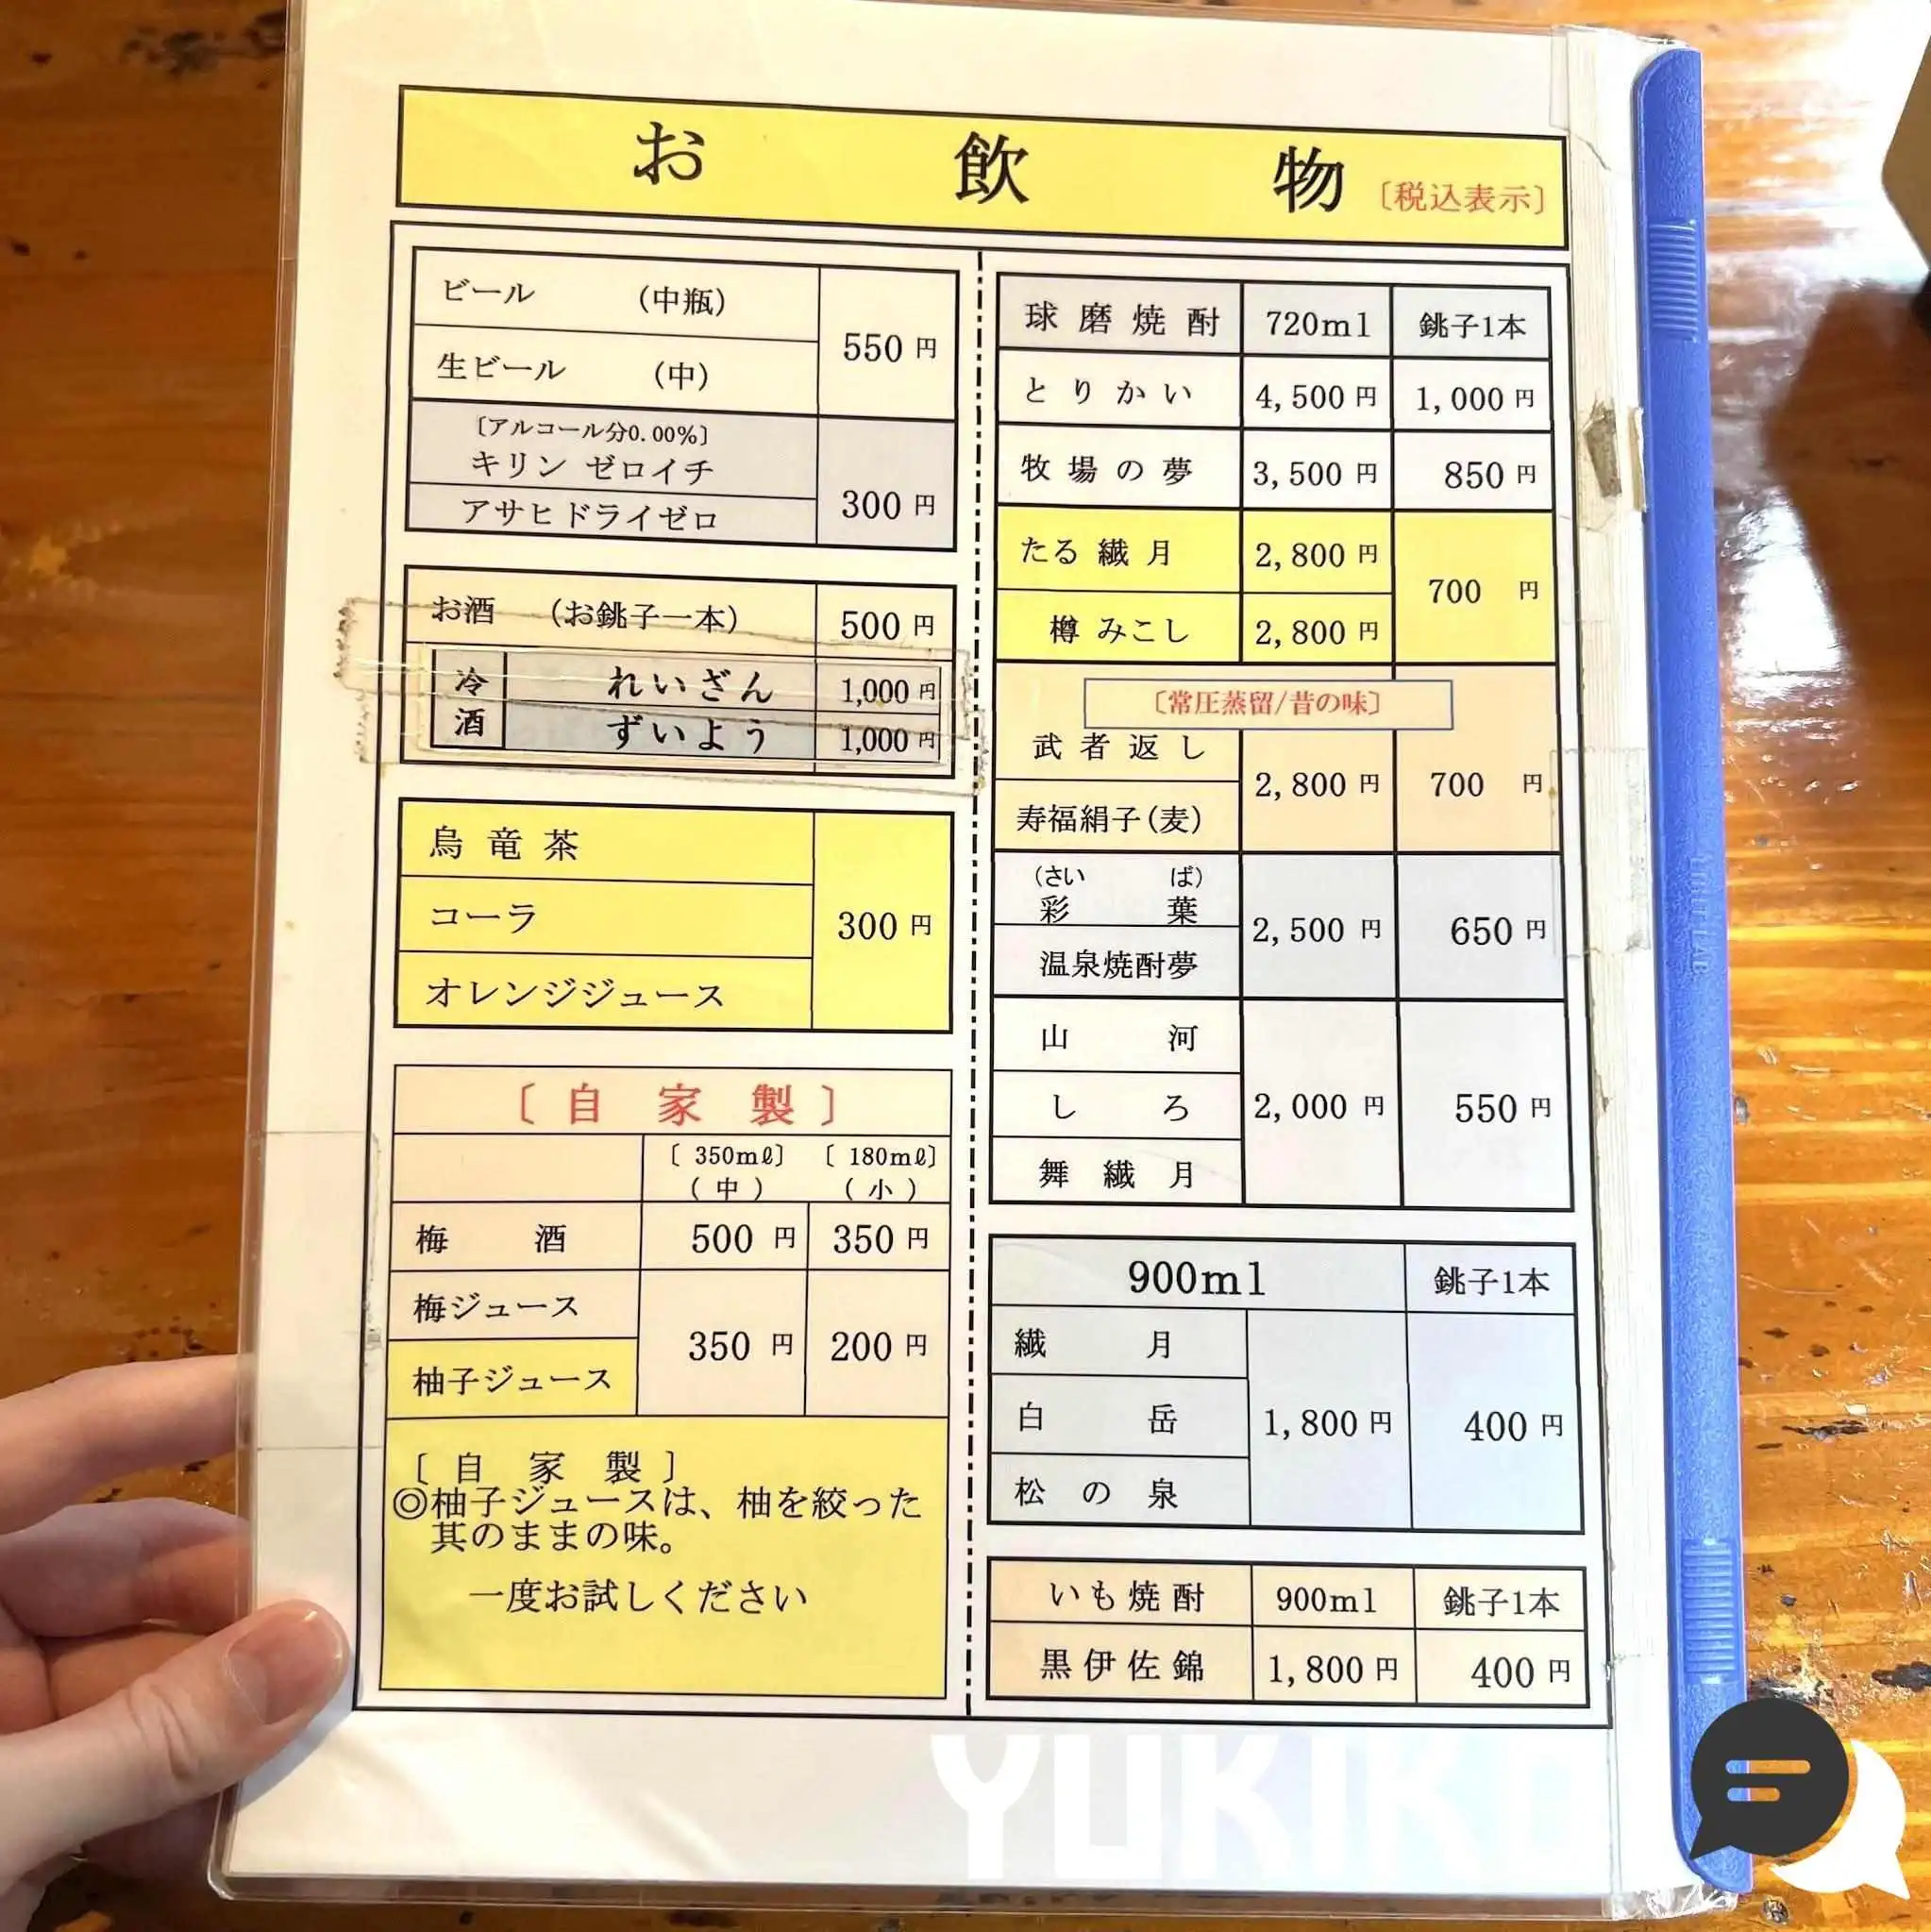 お飲物 〔税込表示〕
ビール (中瓶)
550 円
生ビール (中)
〔アルコール分0.00%〕
キリン ゼロイチ
300 円
アサヒドライゼロ
お酒 (お銚子一本) 500 円
冷酒
れいざん 1,000 円
ずいよう 1,000 円
烏竜茶
コーラ
300 円
オレンジジュース
〔自家製〕
〔350mℓ〕 〔180mℓ〕
(中) (小)
梅酒 500 円 350 円
梅ジュース
350 円 200 円
柚子ジュース
〔自家製〕
◎柚子ジュースは、柚を絞った
其のままの味。
一度お試しください
球磨焼酎 720ml 銚子1本
とりかい 4,500 円 1,000 円
牧場の夢 3,500 円 850 円
たる繊月 2,800 円
700 円
樽みこし 2,800 円
〔常圧蒸留/昔の味〕
武者返し
2,800 円 700 円
寿福絹子(麦)
(さいば)
彩葉
2,500 円 650 円
温泉焼酎夢
山河
しろ
2,000 円 550 円
舞繊月
900ml 銚子1本
繊月
白岳
1,800 円 400 円
松の泉
いも焼酎 900ml 銚子1本
黒伊佐錦 1,800 円 400 円